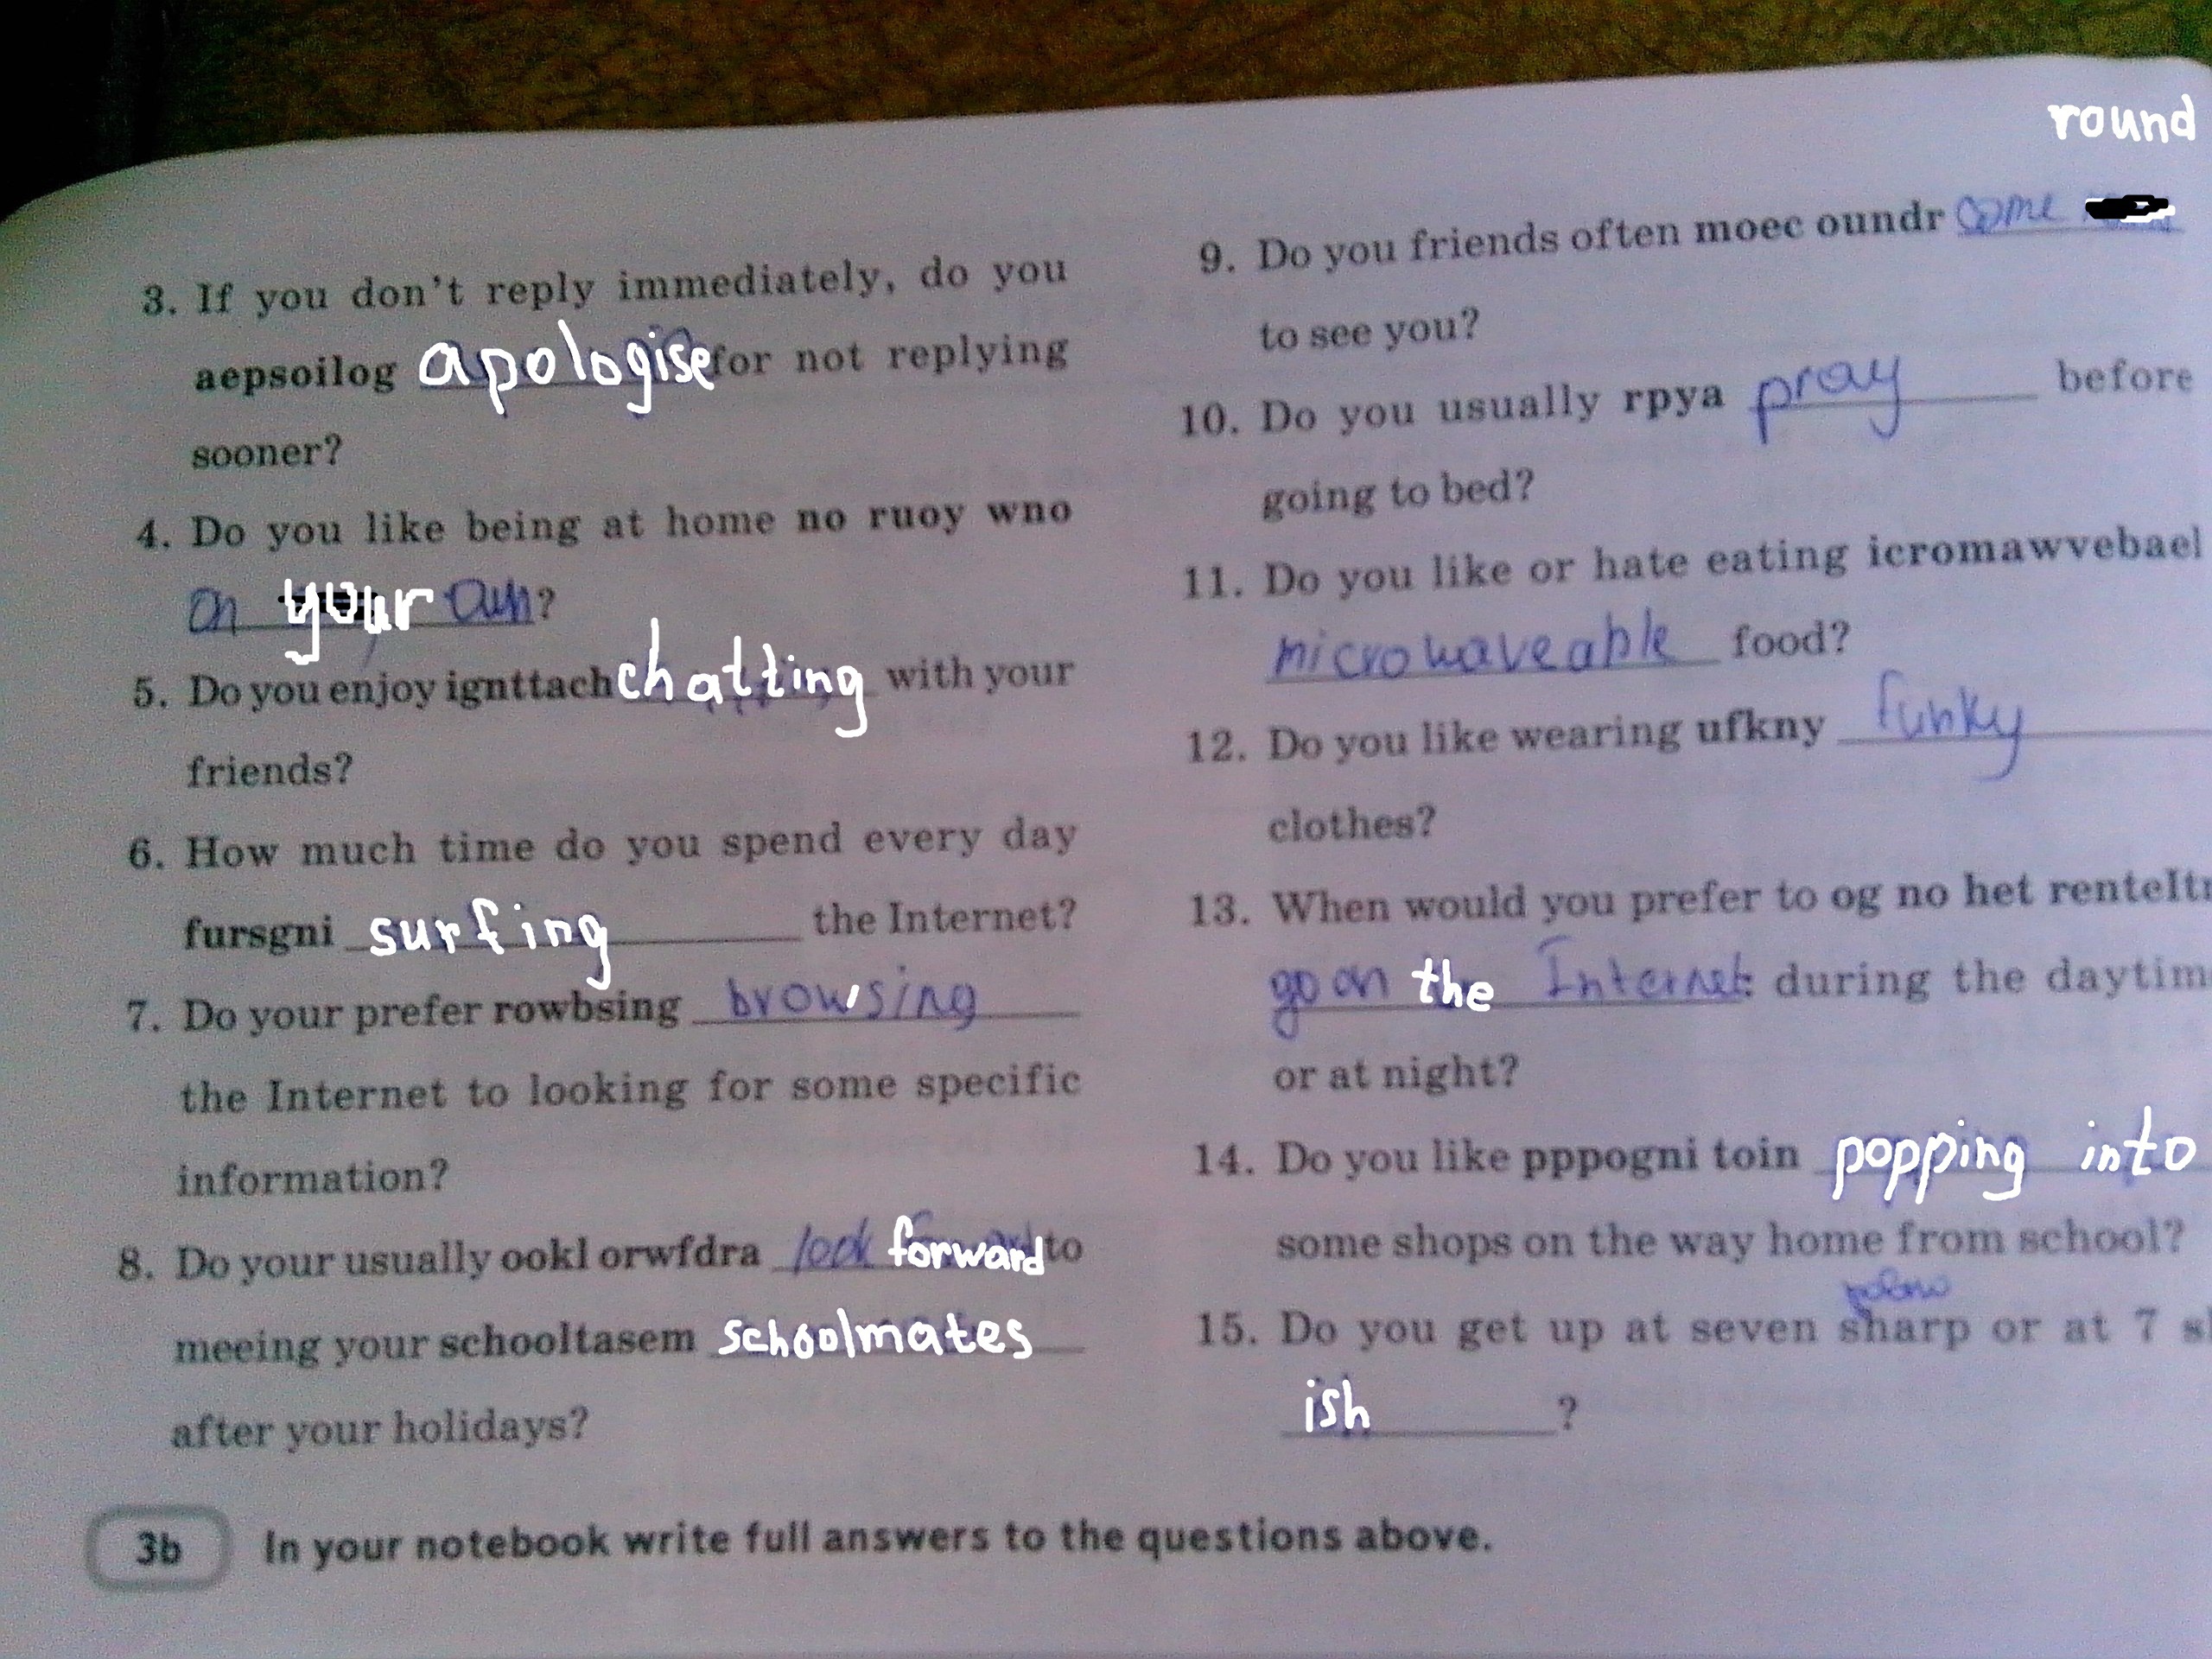 3. If you don't reply immediately, do you
aepsoilog apologise for not replying
sooner?
4. Do you like being at home no ruoy wno
on your own?
5. Do you enjoy ignttach chatting with your
friends?
6. How much time do you spend every day
fursgni surfing the Internet?
7. Do your prefer rowbsing browsing
the Internet to looking for some specific
information?
8. Do your usually ookl orwfdra look forward to
meeing your schooltasem schoolmates
after your holidays?
round
9. Do you friends often moec oundr come
to see you?
10. Do you usually rpya pray before
going to bed?
11. Do you like or hate eating icromawvebael
microwaveable food?
12. Do you like wearing ufkny funky
clothes?
13. When would you prefer to og no het
go on the Internet: during the daytim
or at night?
14. Do you like pppogni toin popping into
some shops on the way home from school?
15. Do you get up at seven sharp or at 7
ish ?
3b In your notebook write full answers to the questions above.